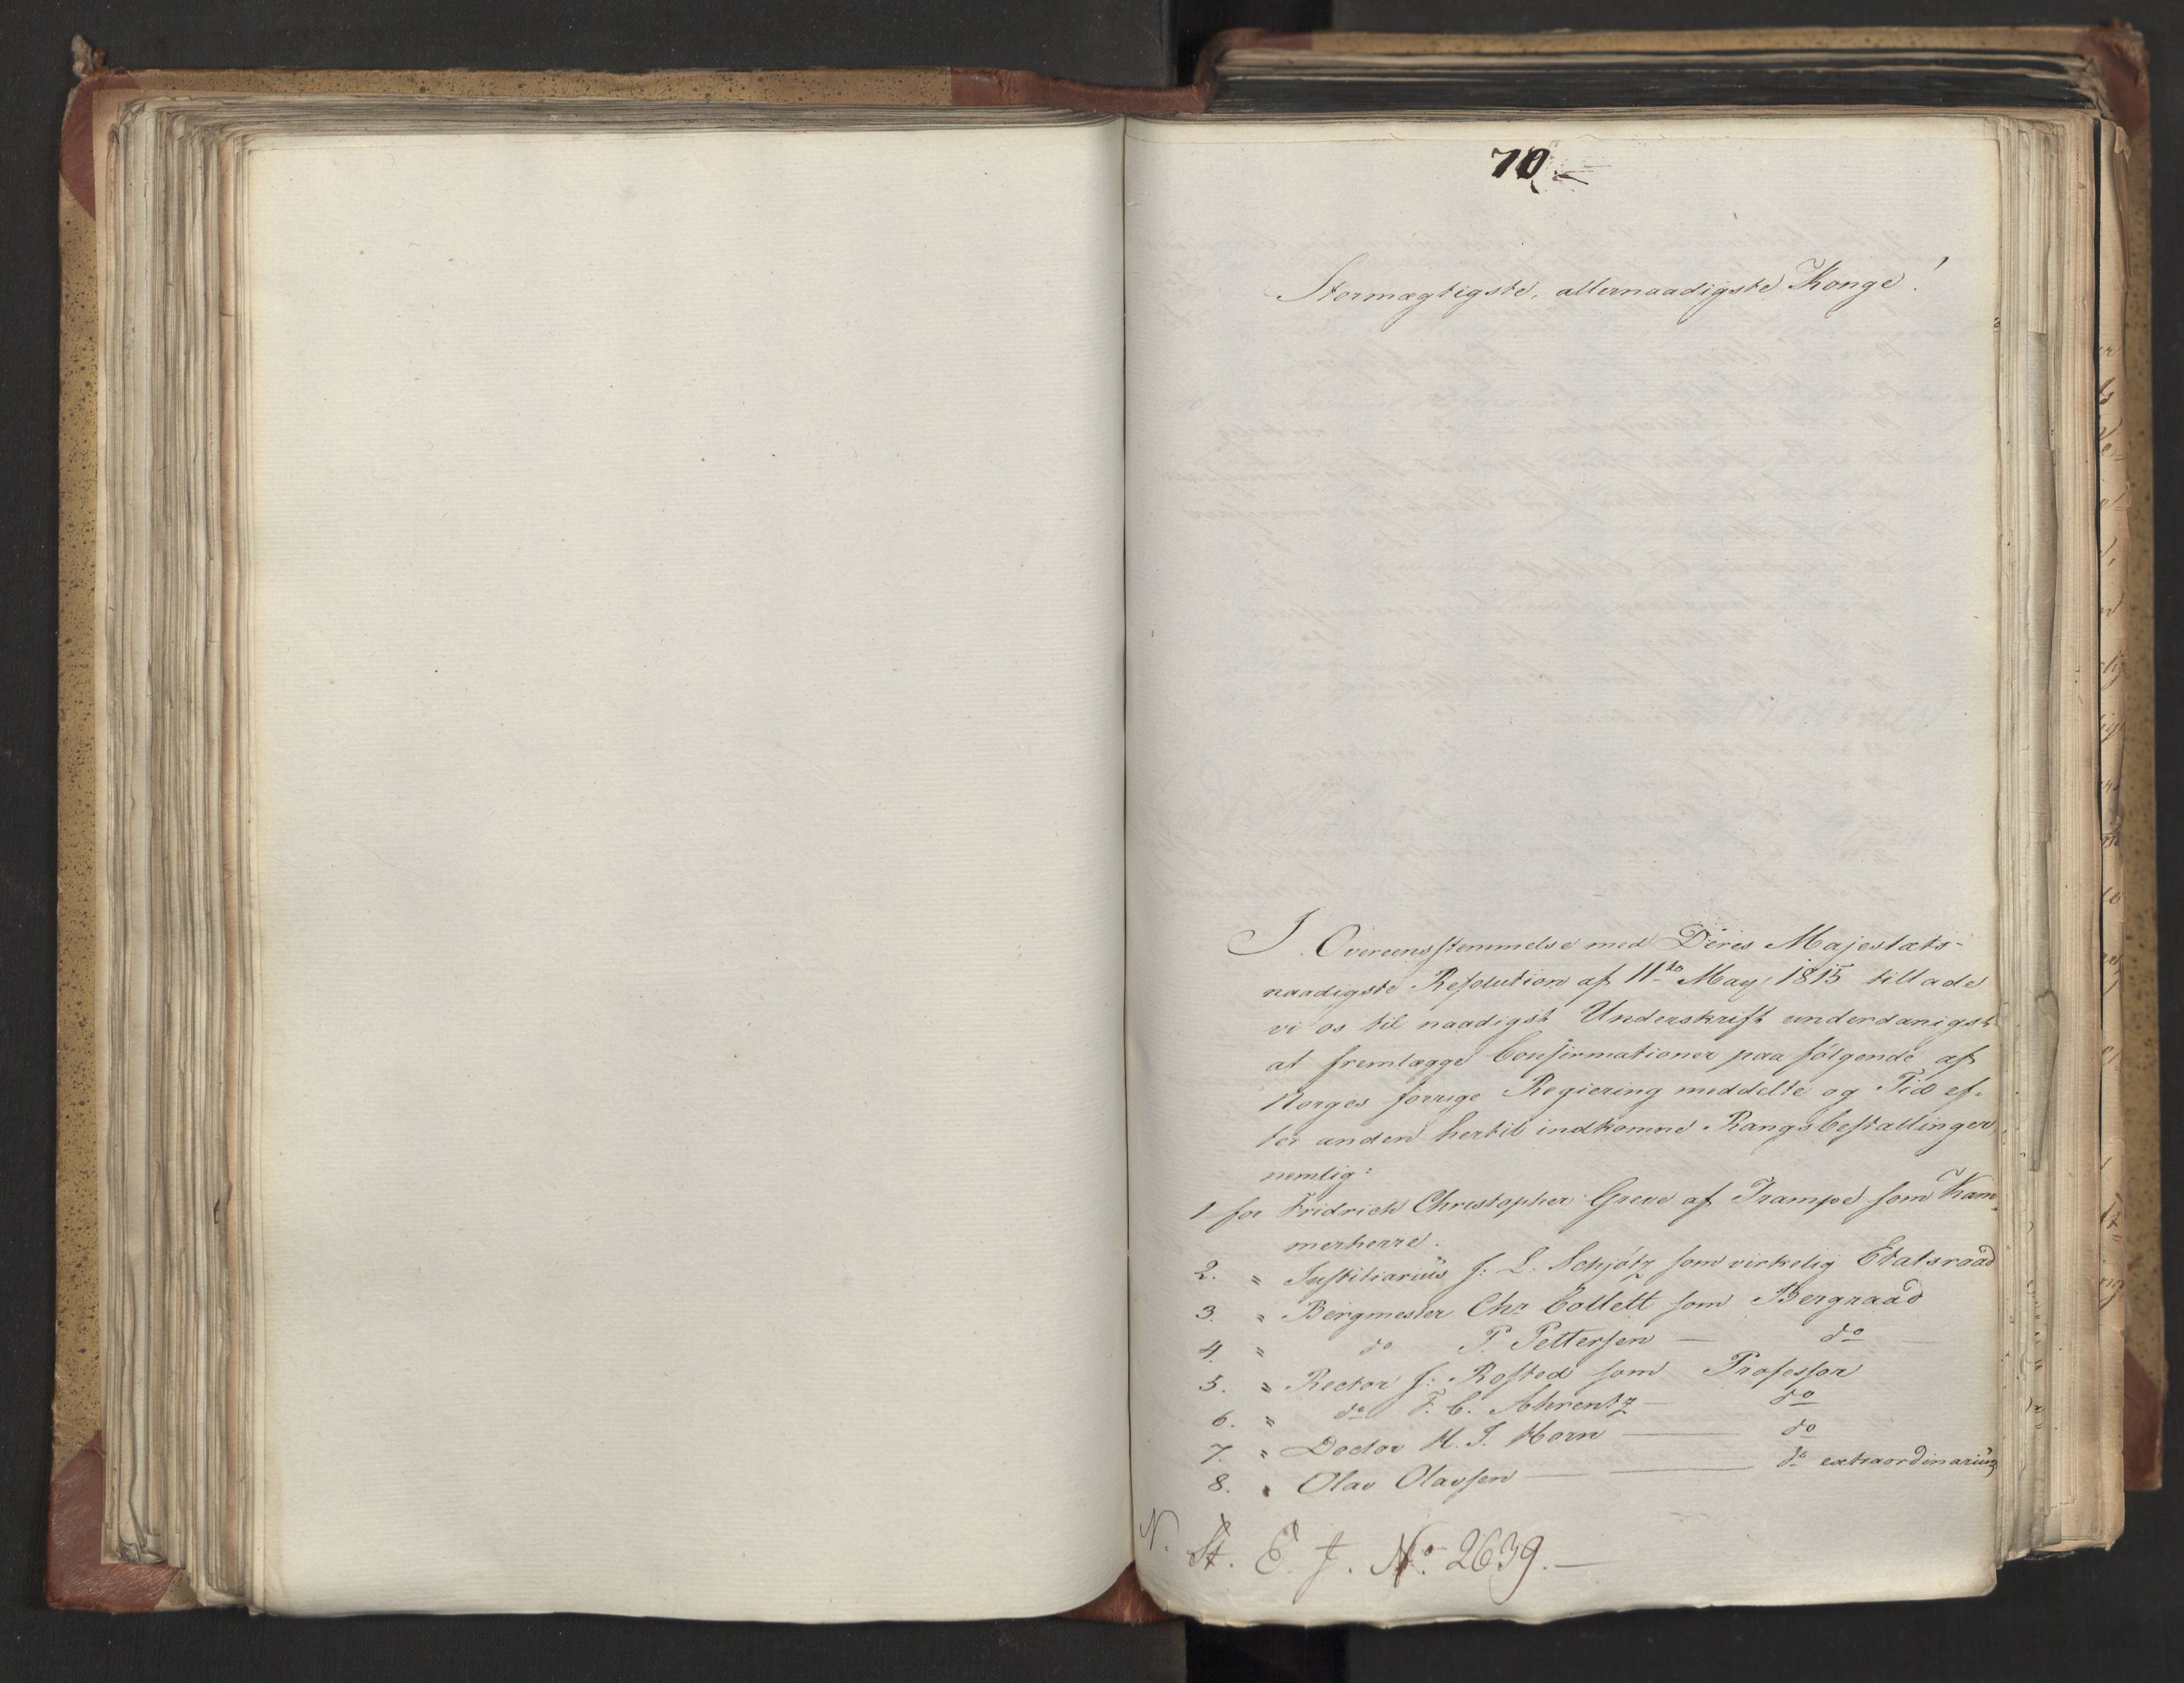 70
Stormægtigste, allernaadigste Konge!
I Overeensstemmelse med Deres Majestæts-
naadigste Resolution af 11te May 1815 tillade
vi os til naadigst Underskrift underdanigst
at fremlægge Confirmationer paa følgende af
Norges forrige Regiering meddelte og Tid ef-
ter anden hertil indkomne Rangsbestallinger,
nemlig:
1 for Fridrich Christopher Greve af Trampe som Kam-
merherre.
2. " Justitiarius J: L: Schjøtz som virkelig Etatsraad
3. " Bergmester Chr Collett som Bergraad
4. " do P. Pettersen — do
5. " Rector J: Rosted som Professor
6. " do F. C. Ahrentz — do
7. " Doctor H. J. Horn — do
8. " Olav Olavsen — — do extraordinarius
N. St. E. J. No. 2639.—